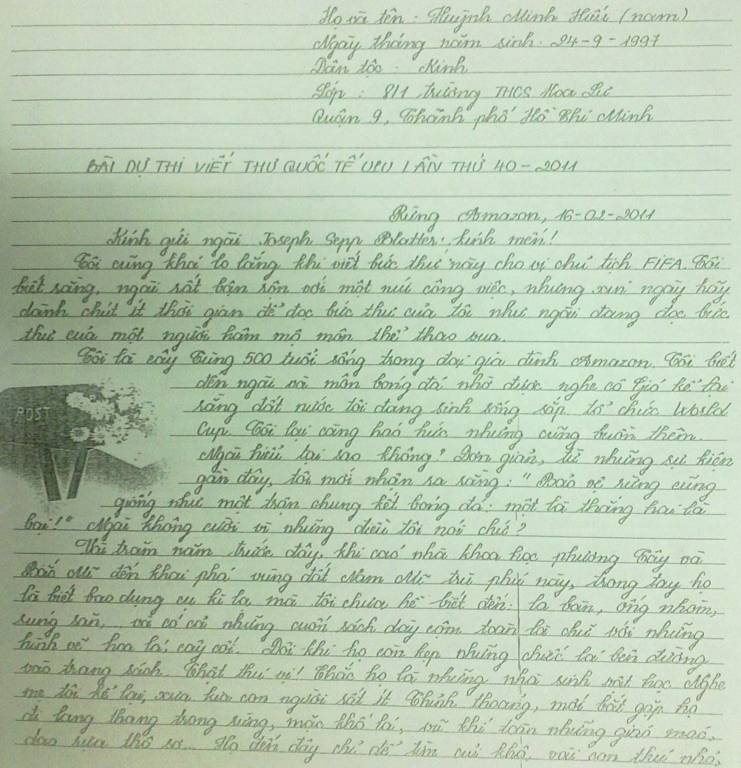 Họ và tên : Huỳnh Minh Hiếu (nam)
Ngày tháng năm sinh : 24-9-1997
Dân tộc : Kinh
Lớp : 8/1 trường THCS Hoa Lư
Quận 9, Thành phố Hồ Chí Minh
BÀI DỰ THI VIẾT THƯ QUỐC TẾ UPU LẦN THỨ 40 - 2011
Rừng Amazon, 16-02-2011
Kính gửi ngài Joseph Sepp Blatter kính mến!
Tôi cũng khá lo lắng khi viết bức thư này cho vị chủ tịch FIFA. Tôi
biết rằng, ngài rất bận rộn với một núi công việc, nhưng xin ngài hãy
dành chút ít thời gian để đọc bức thư của tôi như ngài đang đọc bức
thư của một người hâm mộ môn thể thao vua.
Tôi là cây Tùng 500 tuổi sống trong đại gia đình Amazon. Tôi biết
đến ngài và môn bóng đá nhờ được nghe cô Gió kể lại
rằng đất nước tôi đang sinh sống sắp tổ chức World
Cup. Tôi lại càng háo hức nhưng cũng buồn thêm.
Ngài hiểu tại sao không? Đơn giản, từ những sự kiện
gần đây, tôi mới nhận ra rằng: "Bảo vệ rừng cũng
giống như một trận chung kết bóng đá: một là thắng hai là
bại!" Ngài không cười vì những điều tôi nói chứ?
Vài trăm năm trước đây, khi các nhà khoa học phương Tây và
Bắc Mĩ đến khai phá vùng đất Nam Mĩ trù phú này, trong tay họ
là biết bao dụng cụ kì lạ mà tôi chưa hề biết đến: la bàn, ống nhòm,
súng săn, và có cả những cuốn sách dày cộm toàn là chữ với những
hình vẽ hoa lá, cây cối. Đôi khi họ còn kẹp những chiếc lá bên đường
vào trang sách. Thật thú vị! Chắc họ là những nhà sinh vật học. Nghe
mẹ tôi kể lại, xưa kia con người rất ít. Thỉnh thoảng, mới bắt gặp họ
đi lang thang trong rừng, mặc khố lá, vũ khí toàn những giáo mác,
dao rựa thô sơ... Họ đến đây chỉ để tìm củi khô, vài con thú nhỏ,
POST